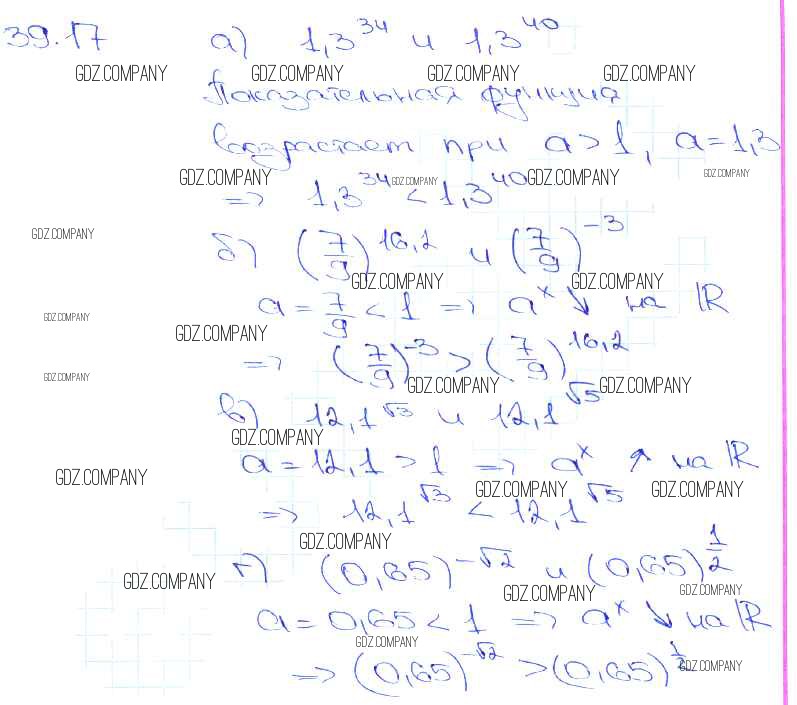 39.17 а) 1,3^34 и 1,3^40
GDZ.COMPANY GDZ.COMPANY GDZ.COMPANY GDZ.COMPANY
Показательная функция
возрастает при a>1, a=1,3
GDZ.COMPANY GDZ.COMPANY GDZ.COMPANY GDZ.COMPANY
=> 1,3^34 < 1,3^40
GDZ.COMPANY
б) (7/9)^16,2 и (7/9)^-3
GDZ.COMPANY GDZ.COMPANY
a = 7/9 < 1 => a^x ↘ на ℝ
GDZ.COMPANY
GDZ.COMPANY
=> (7/9)^-3 > (7/9)^16,2
GDZ.COMPANY GDZ.COMPANY GDZ.COMPANY
в) 12,1^√3 и 12,1^√5
GDZ.COMPANY
a = 12,1 > 1 => a^x ↗ на ℝ
GDZ.COMPANY GDZ.COMPANY GDZ.COMPANY
=> 12,1^√3 < 12,1^√5
GDZ.COMPANY
г) (0,65)^-√2 и (0,65)^1/2
GDZ.COMPANY GDZ.COMPANY GDZ.COMPANY
a = 0,65 < 1 => a^x ↘ на ℝ
GDZ.COMPANY
=> (0,65)^-√2 > (0,65)^1/2
GDZ.COMPANY